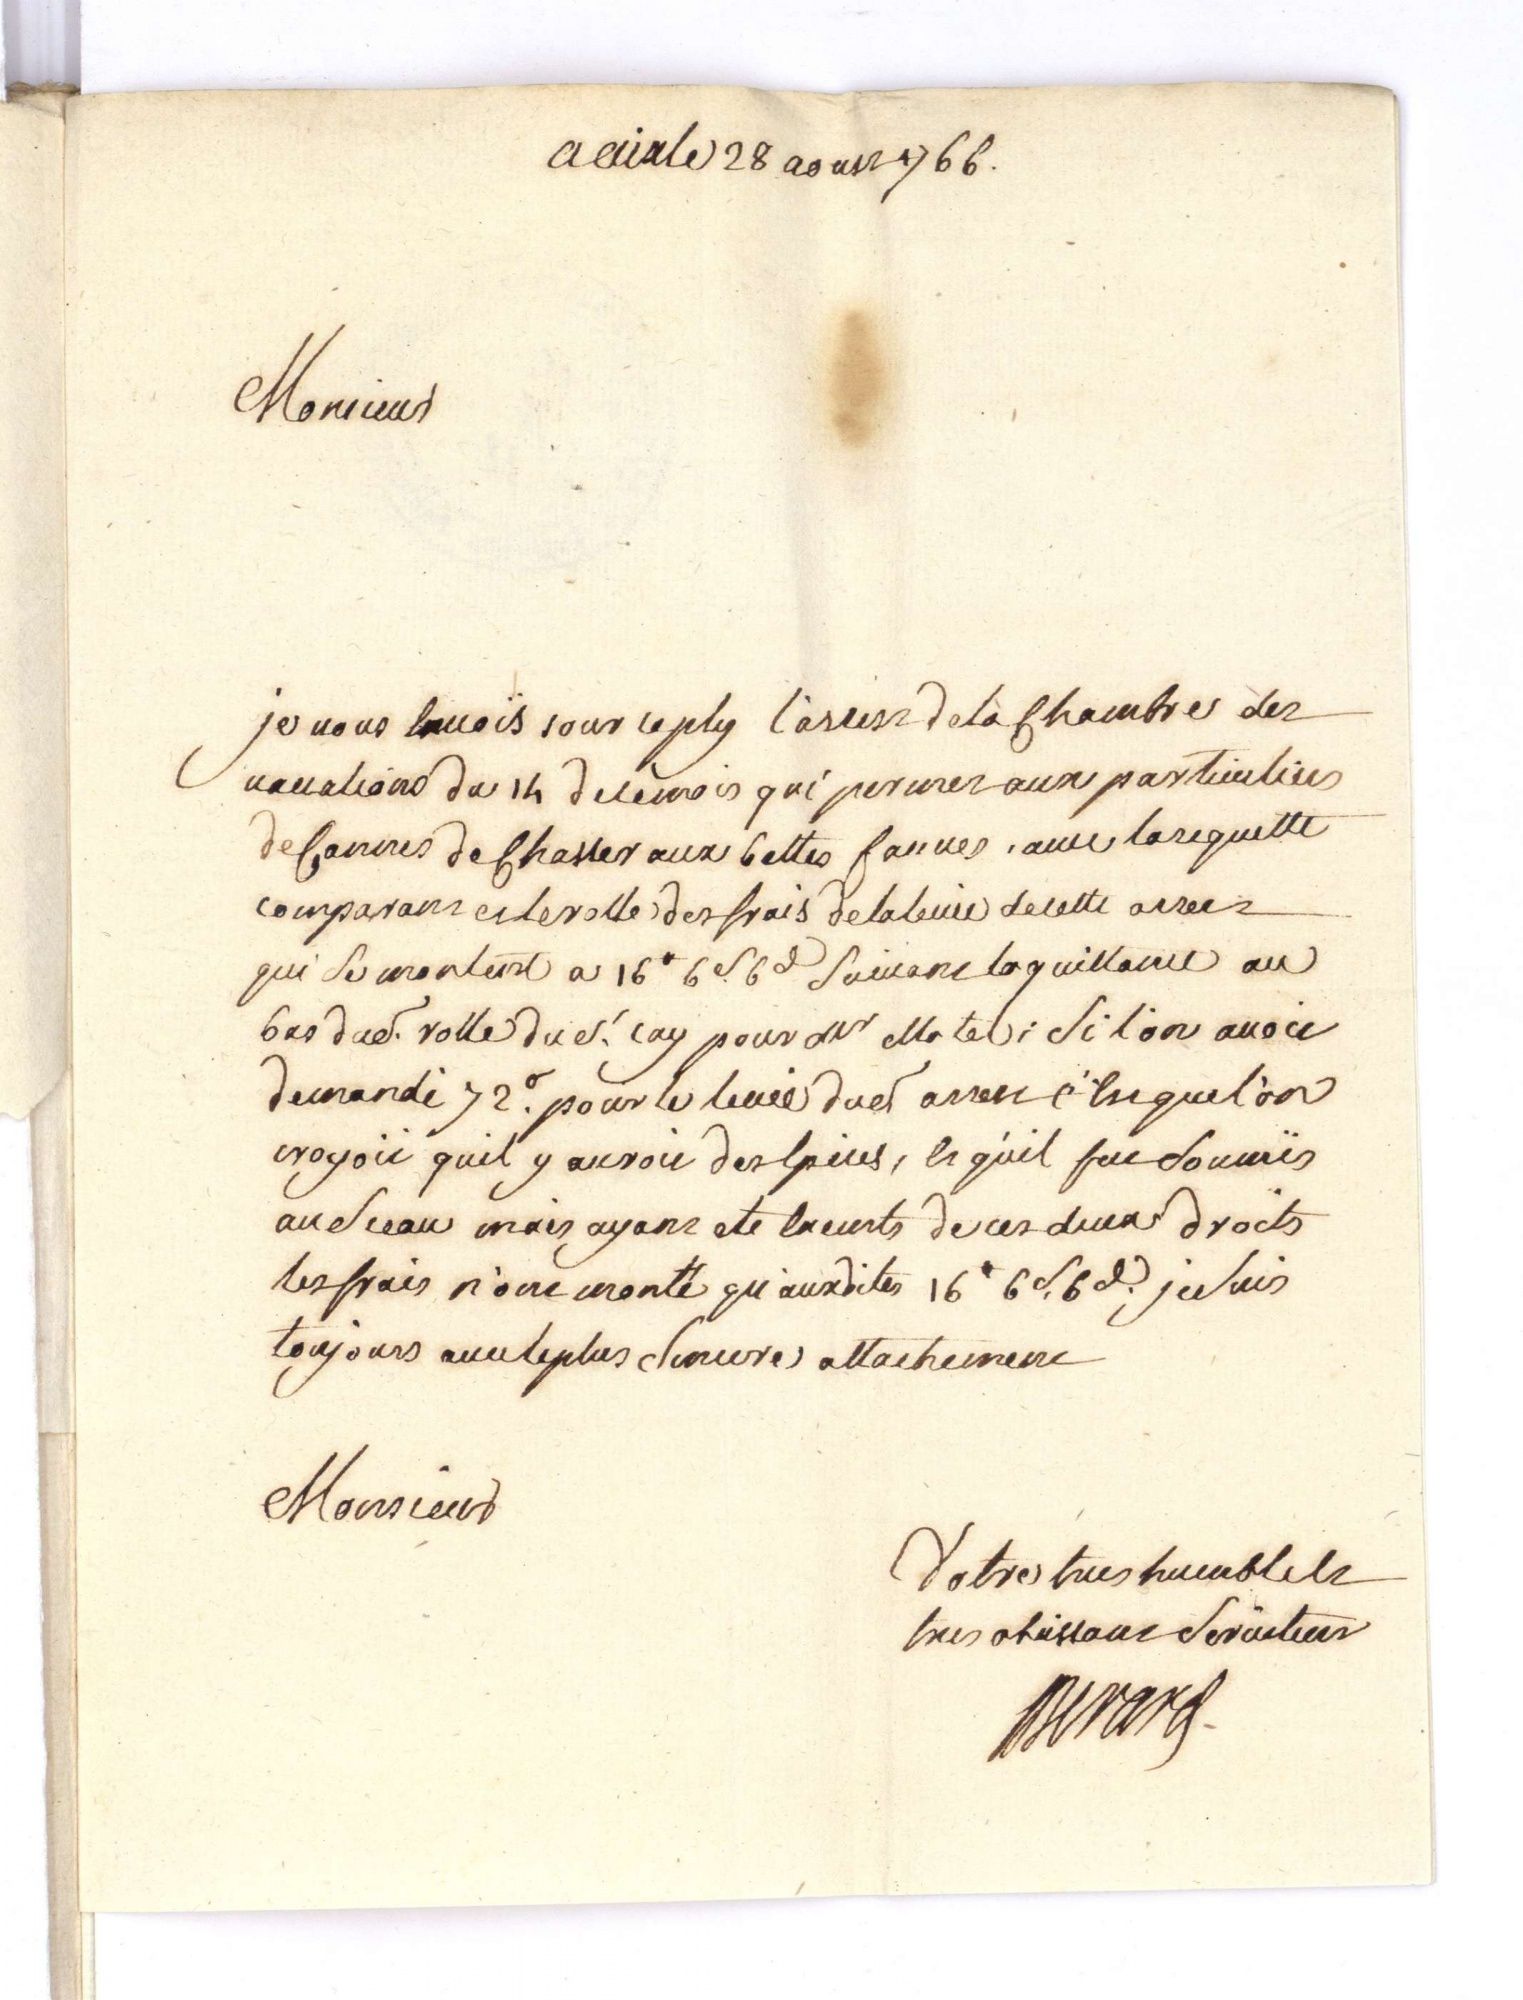 a aix le 28 aoust 1766.
Monsieur
je vous envois sous ce ply l'arrest de la Chambre des
vacations du 14 de ce mois qui permet aux particuliers
de Cannes de Chasser aux bettes fauves, avec la requette
comparant et le rolle des frais de la levée de cette arrest
qui se montent a 16# 6 s. 6 d suivant la quittance au
bas dud. rolle du Sr. Cay pour Mr Matel; si l'on avoit
demandé 72# pour le levée dud arrest c'est que l'on
croyoit quil y auroit des epices, et qu'il fut soumis
au sceau mais ayant ete exempts de ces deux droits
les frais n'ont monté qu'auxdites 16# 6 s. 6 d. je suis
toujours avec le plus sincere attachement
Monsieur
Votre tres humble et
tres obeissant serviteur
Berard